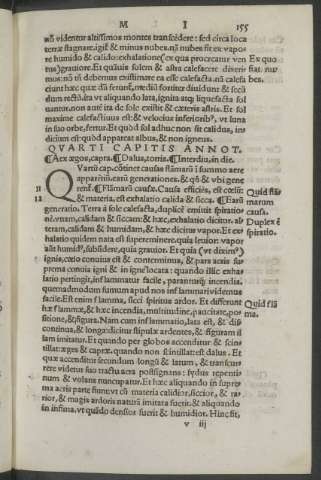 M I 155
nõ videntur altissimos montes transcēdere: sed circa loca
terræ stagnare. igit̃ & minus nubes. nã nubes fit ex vapo-
re humido & calido: exhalatione (ex qua procreatur ven
tus) grauiore. Et quãuis solem & astra calefacere dixeri
mus: nō tñ debemus existimare ea esse calefacta. nã calefa
ciunt hæc quæ dã ferunt̃, mediū fortiter diuidunt & secũ
dum rectũ. ita vt aliquando lata, ignita atq; liquefacta sol
uantur. non autē ita de sole existit & cæteris astris. Et sol
maxime calefactiuus est: & velocius inferioribꝰ, vt luna
in suo orbe, fertur. Et quòd sol adhuc non sit calidus, in-
dicium est: quòd appareat albus, & non igneus.
Ex quo
fiat nu
bes.
QVARTI CAPITIS ANNOT.
¶A ex ægos, capra. ¶Dalus, torris. ¶Interdiu, in die.
QVartũ cap. cõtinet causas flãmarũ i summo aere
apparētiũ. earũ generationes. & qñ & vbi gene
II
rent̃. ¶Flãmarũ causæ. Causa efficiēs, est cœlum:
12
& materia, est exhalatio calida & sicca. ¶Earũ
generatio. Terra à sole calefacta, duplicē emittit spiratio
nē. vnam, calidam & siccam: & hæc, exhalatio dicitur. al-
teram, calidam & humidam, & hæc dicitur vapor. Et ex-
halatio quidem nata est supereminere. quia leuior: vapor
aũt humidꝰ, subsidere, quia grauior. Et quia (vt diximꝰ)
ignis, cœlo conuius est & conterminus, & pars aeris su-
prema conuia igni & in igne locata: quando illic exha-
latio pertingit, inflammatur facile, parantusq; incendia.
quemadmodum fumum apud nos inflammari videmus
facile. Est enim flamma, sicci spiritus ardor. Et differunt
hæ flammæ, & hæc incendia, multitudine, paucitate, po-
sitione, & figura. Nam cum inflammatio, lata est, & dis
continua, & longa: dicitur stipulæ ardentes, & figuram il
lam imitatur. Et quando per globos accenditur & scin-
tillat: æges & capræ. quando non scintillat: est dalus. Et
quæ accenditur secundum longũ & latum, & transcur-
rere videtur suo tractu aera postsignans: sydus repenti-
num & volans nuncupatur. Et hæc aliquando in supre-
ma aeris parte fiunt: vt cũ materia calidior, siccior, & ra-
rior, & magis ardoris naturã imitata fuerit. & aliquando
in infima. vt quãdo densior fuerit & humidior. Hinc fit,
Quid flã
marum
causa.
Duplex ē
spiratio.
Quid flã
ma.
v iij